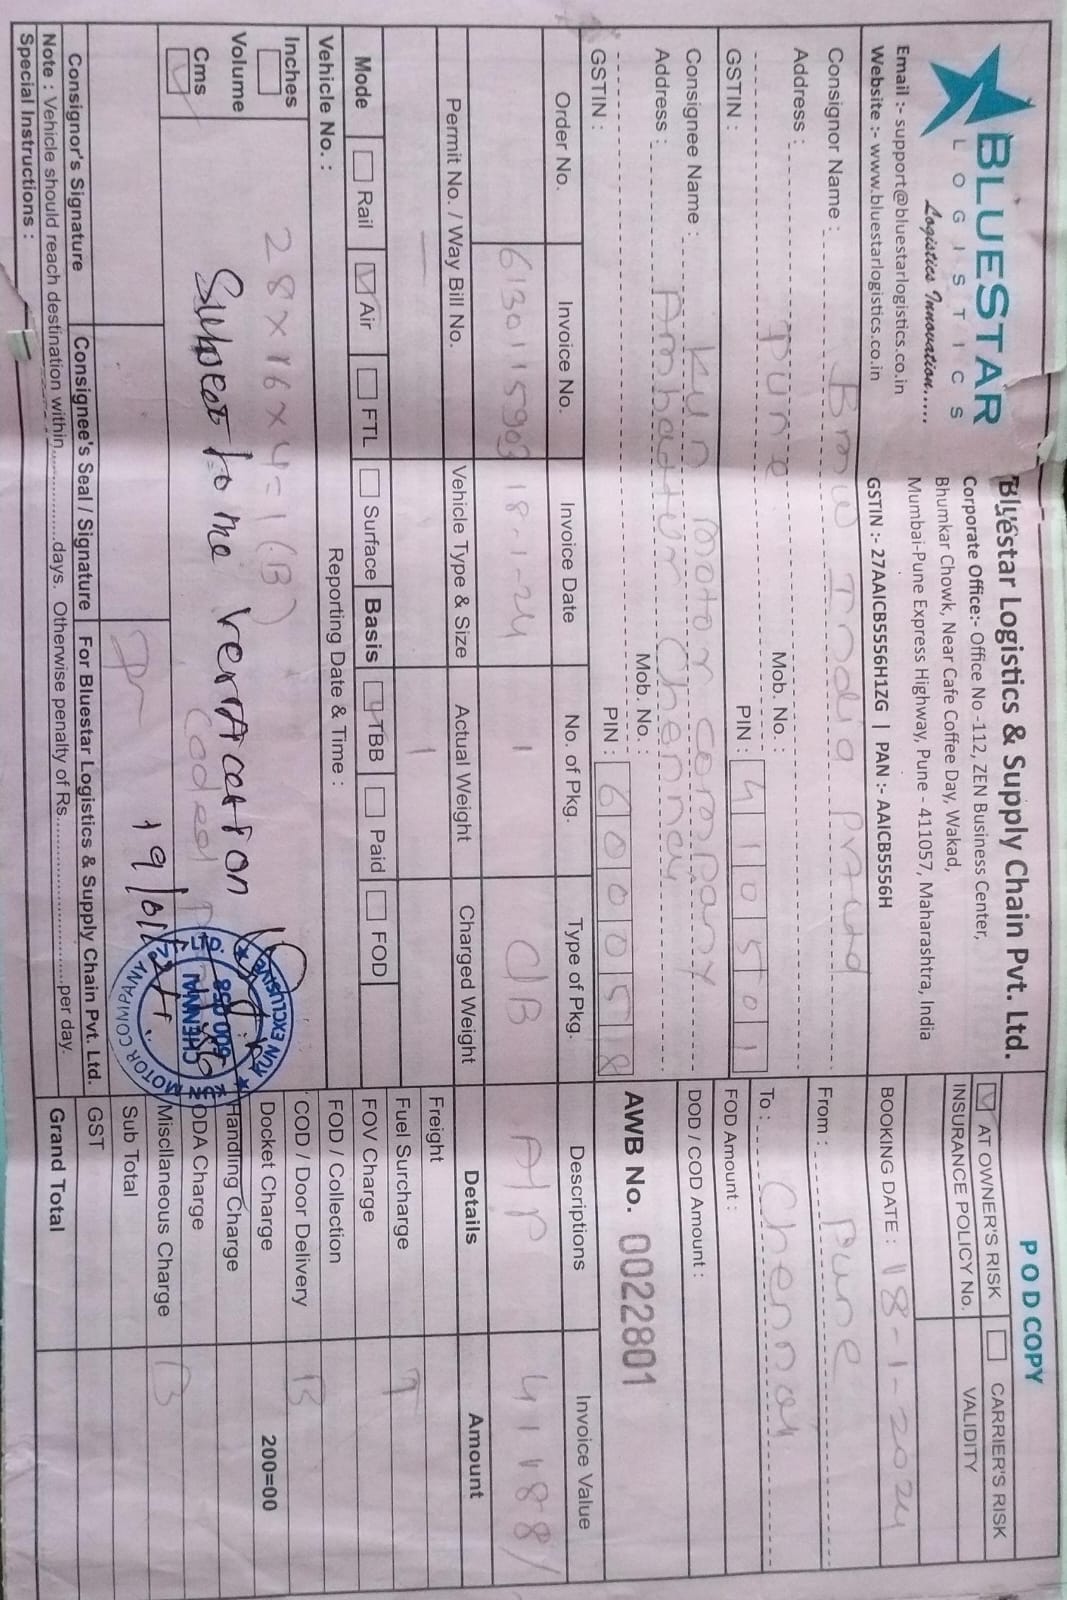 BLUESTAR
LOGISTICS
Logistics Innovation.....
Email :- support@bluestarlogistics.co.in
Website :- www.bluestarlogistics.co.in
Bluestar Logistics & Supply Chain Pvt. Ltd.
Corporate Office:- Office No -112, ZEN Business Center,
Bhumkar Chowk, Near Cafe Coffee Day, Wakad,
Mumbai-Pune Express Highway, Pune - 411057, Maharashtra, India
GSTIN :- 27AAICB5556H1ZG | PAN :- AAICB5556H
POD COPY
AT OWNER'S RISK CARRIER'S RISK
INSURANCE POLICY No. VALIDITY
BOOKING DATE : 18-1-2024
Consignor Name : BMW India Pvt Ltd
From : Pune
Address :
Pune Mob. No. :
To : Chennai
GSTIN : PIN : 410501
FOD Amount :
Consignee Name : Kun Motor Company
DOD / COD Amount :
Address : Ambattur Chennai
Mob. No. :
AWB No. 0022801
GSTIN : PIN : 600058
Order No. Invoice No. Invoice Date No. of Pkg. Type of Pkg. Descriptions Invoice Value
6130115903 18-1-24 1 C/B A/P 41188/
Permit No. / Way Bill No. Vehicle Type & Size Actual Weight Charged Weight Details Amount
— 1
Freight
Fuel Surcharge T
Mode Rail Air FTL Surface Basis TBB Paid FOD
FOV Charge
Vehicle No. : Reporting Date & Time :
FOD / Collection
COD / Door Delivery B
Docket Charge 200=00
Handling Charge
ODA Charge
Miscllaneous Charge B
Sub Total
GST
Grand Total
Inches
Volume
Cms
28×16×4=1(B)
Subject to the verification
19/01/24
KUN EXCLUSIVE
KUN MOTOR COMPANY PVT. LTD.
CHENNAI
600 058
Consignor's Signature Consignee's Seal / Signature For Bluestar Logistics & Supply Chain Pvt. Ltd.
Note : Vehicle should reach destination within................days. Otherwise penalty of Rs.............................per day.
Special Instructions :